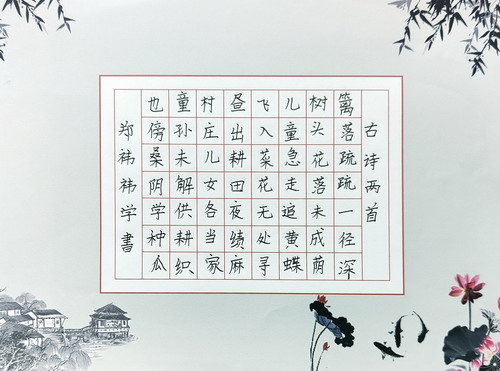 古诗两首
篱落疏疏一径深
树头花落未成荫
儿童急走追黄蝶
飞入菜花无处寻
昼出耕田夜绩麻
村庄儿女各当家
童孙未解供耕织
也傍桑阴学种瓜
郑祎祎学書